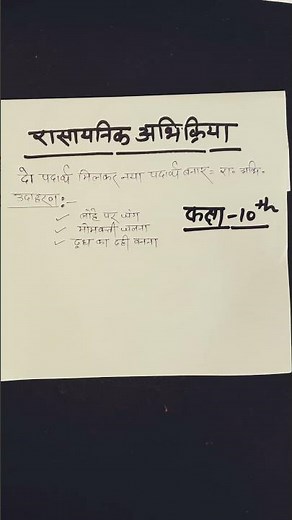 रासायनिक अभिक्रिया
दो पदार्थ मिलकर नया पदार्थ बनाए = रा॰ अभि॰
उदाहरण :-
✓ लोहे पर जंग
कक्षा - 10th
✓ मोमबत्ती जलना
✓ दूध का दही बनना